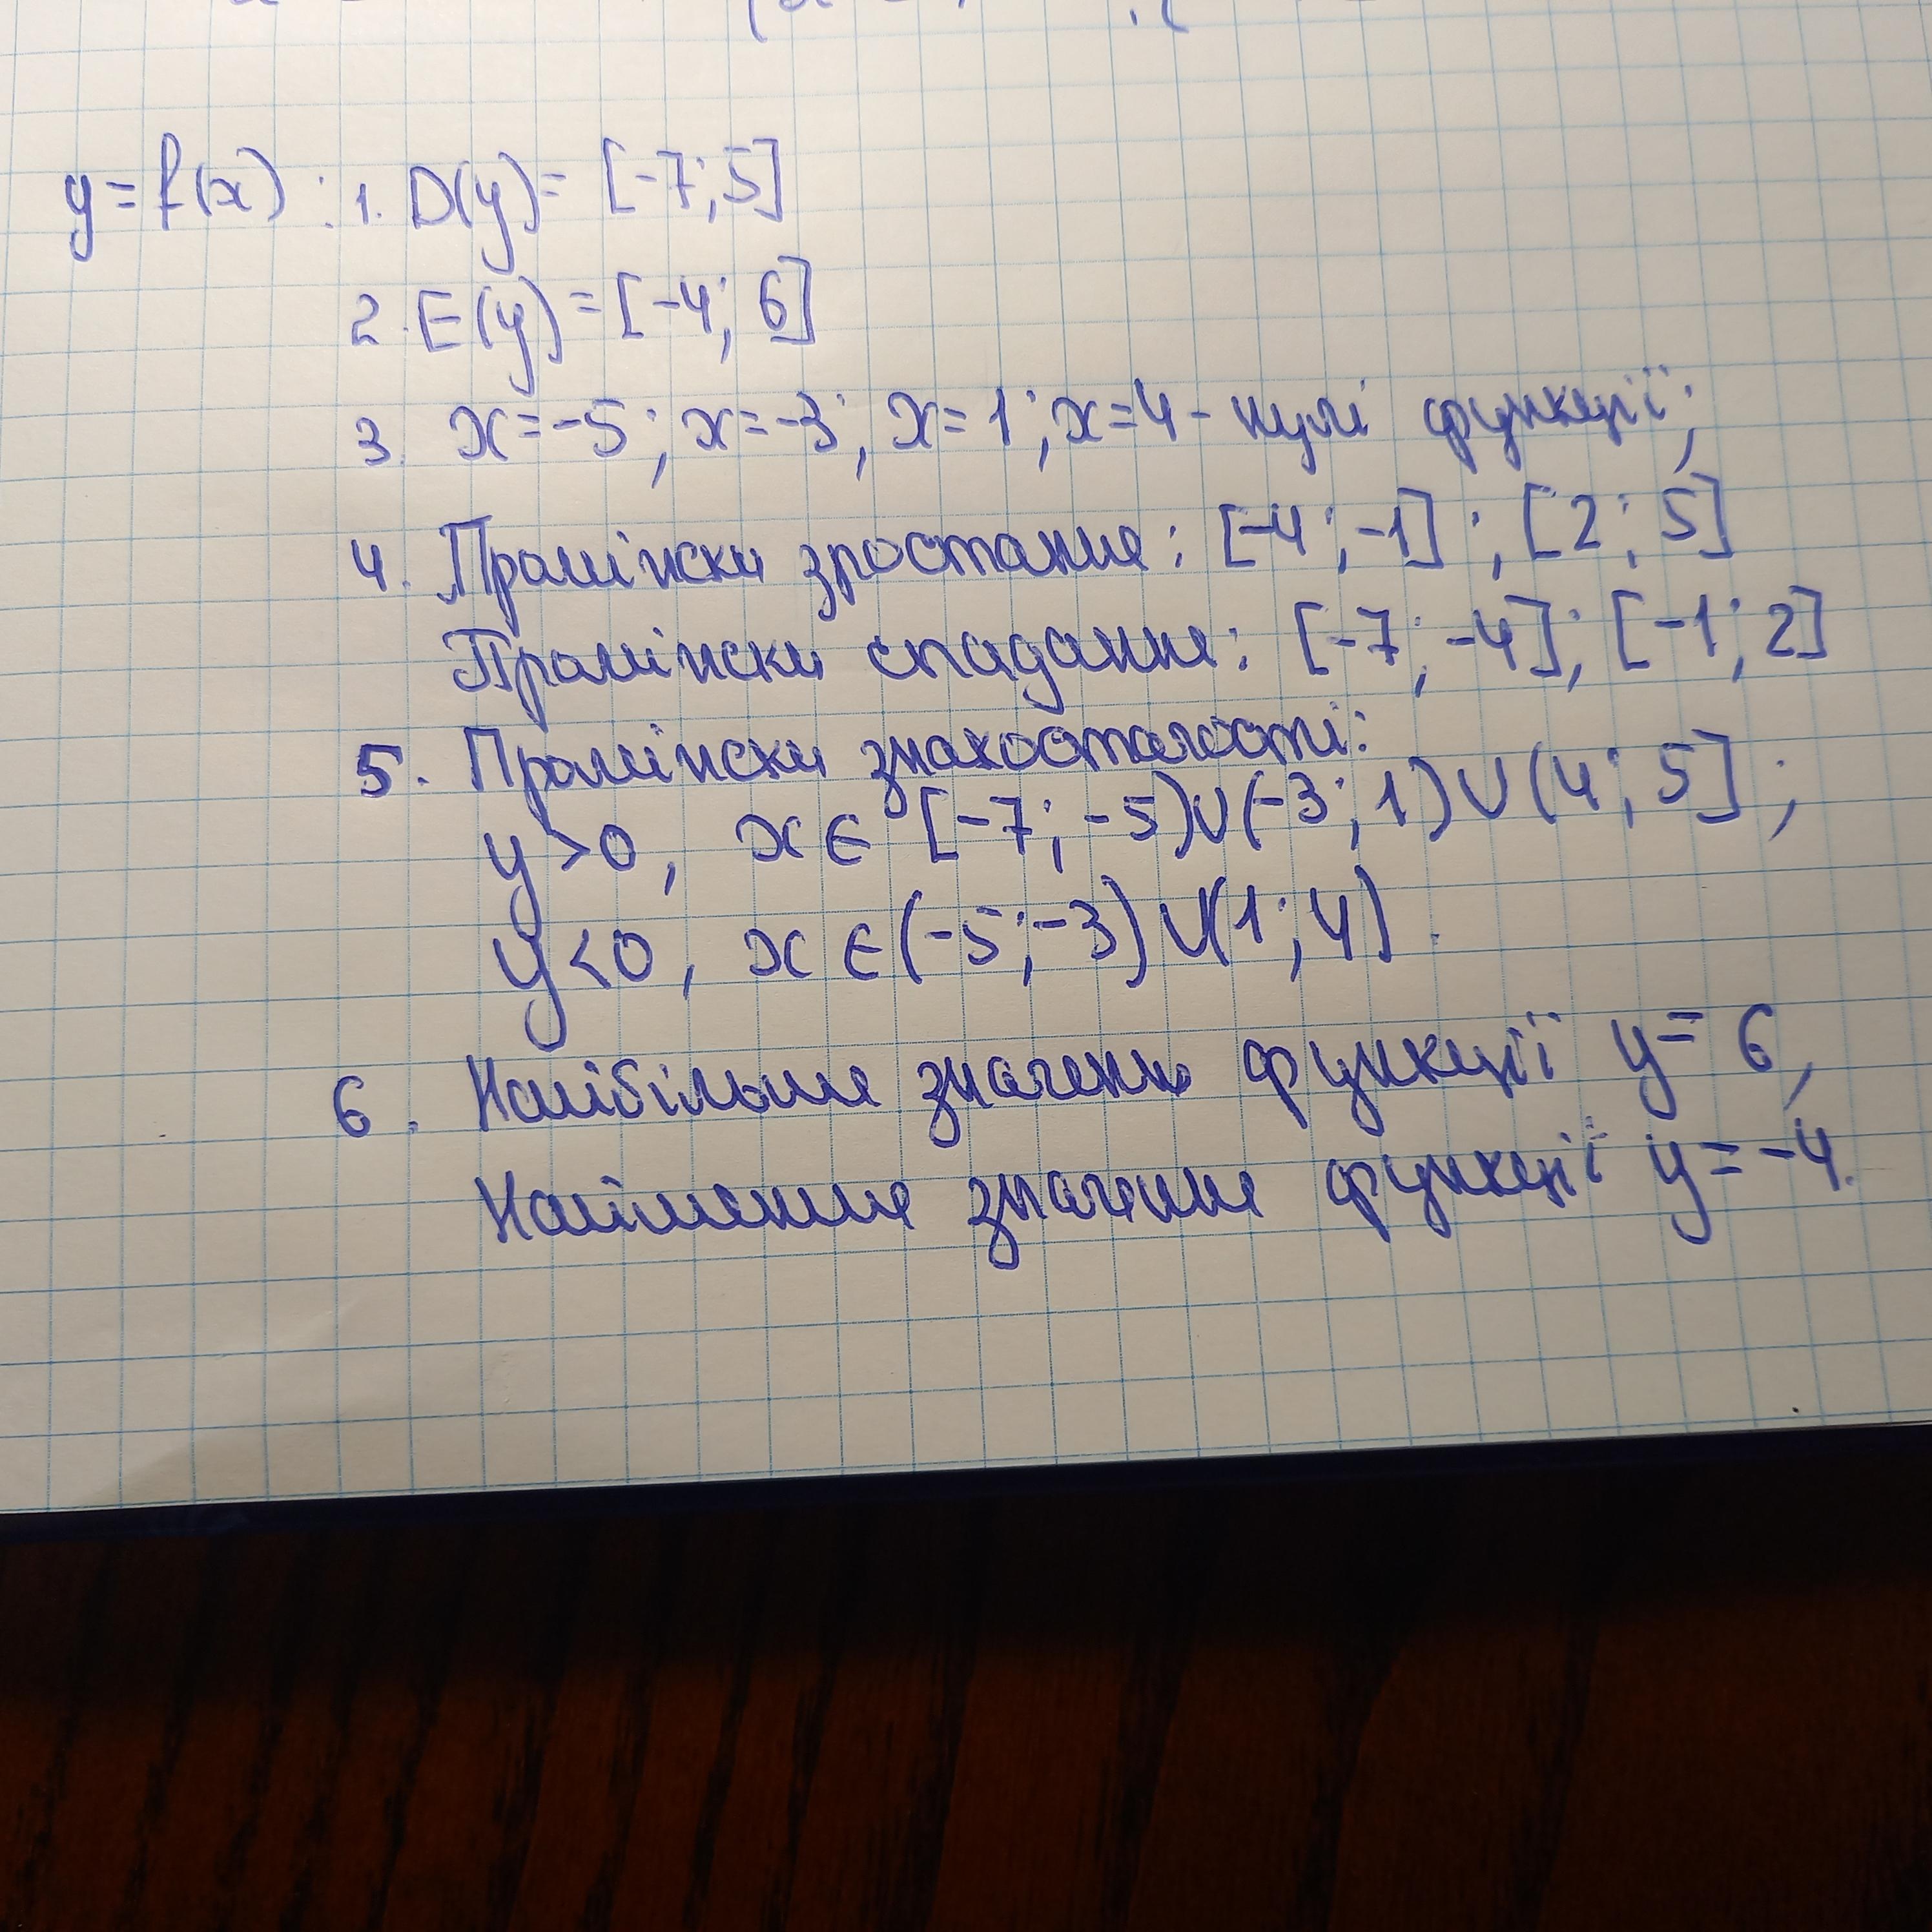 y=f(x) : 1. D(y)= [-7; 5]
2. E(y)=[-4; 6]
3. x=-5; x=-3; x=1; x=4 - нулі функції;
4. Проміжки зростання: [-4; -1]; [2; 5]
Проміжки спадання: [-7; -4]; [-1; 2]
5. Проміжки знакосталості:
y>0, x∈ [-7; -5)∪(-3; 1)∪(4; 5];
y<0, x∈(-5;-3)∪(1; 4).
6. Найбільше значення функції y= 6,
Найменше значення функції y=-4.